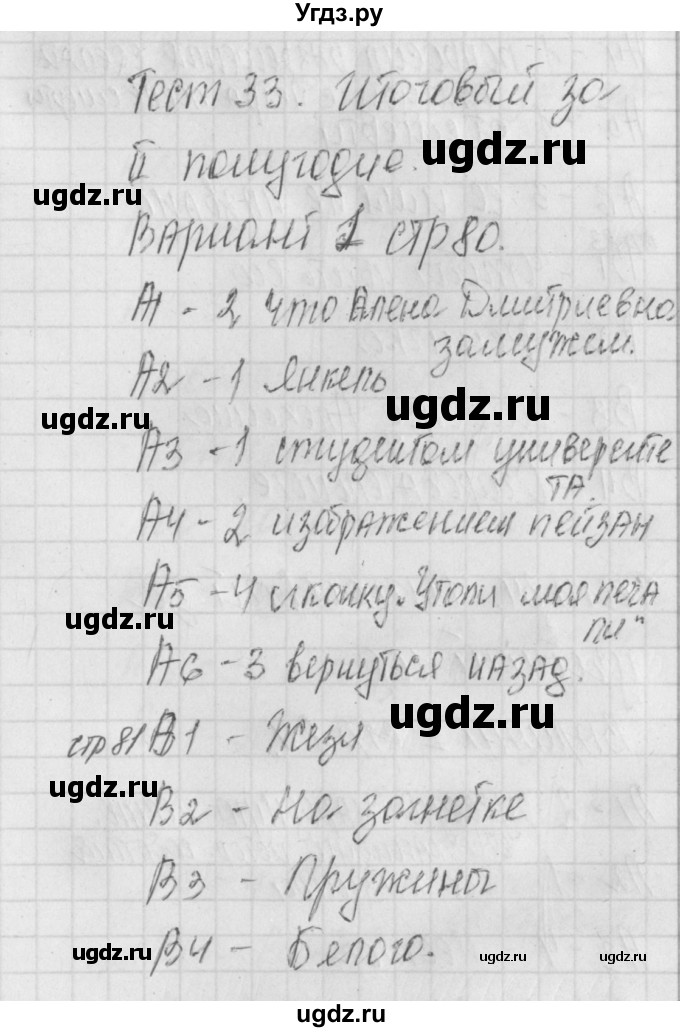 Угдз.ру
Тест 33. Итоговый за
II полугодие.
ugdz.ru
ugdz.ru
Вариант 1 стр 80.
А1 - 2 что Алена Дмитриевна
замужем.
А2 - 1 Янкель
ugdz.ru
ugdz.ru
А3 - 1 студентом университе
та.
А4 - 2 изображением пейзаж
ugdz.ru
А5 - 4 иконку. Утоли моя печа
ли"
ugdz.ru
А6 - 3 вернуться назад.
ugdz.ru
стр 81 В1 - Жезл
ugdz.ru
В2 - На загнетке
В3 - Пружины
В4 - Белого.
ugdz.ru
ugdz.ru
ugdz.ru
ugdz.ru